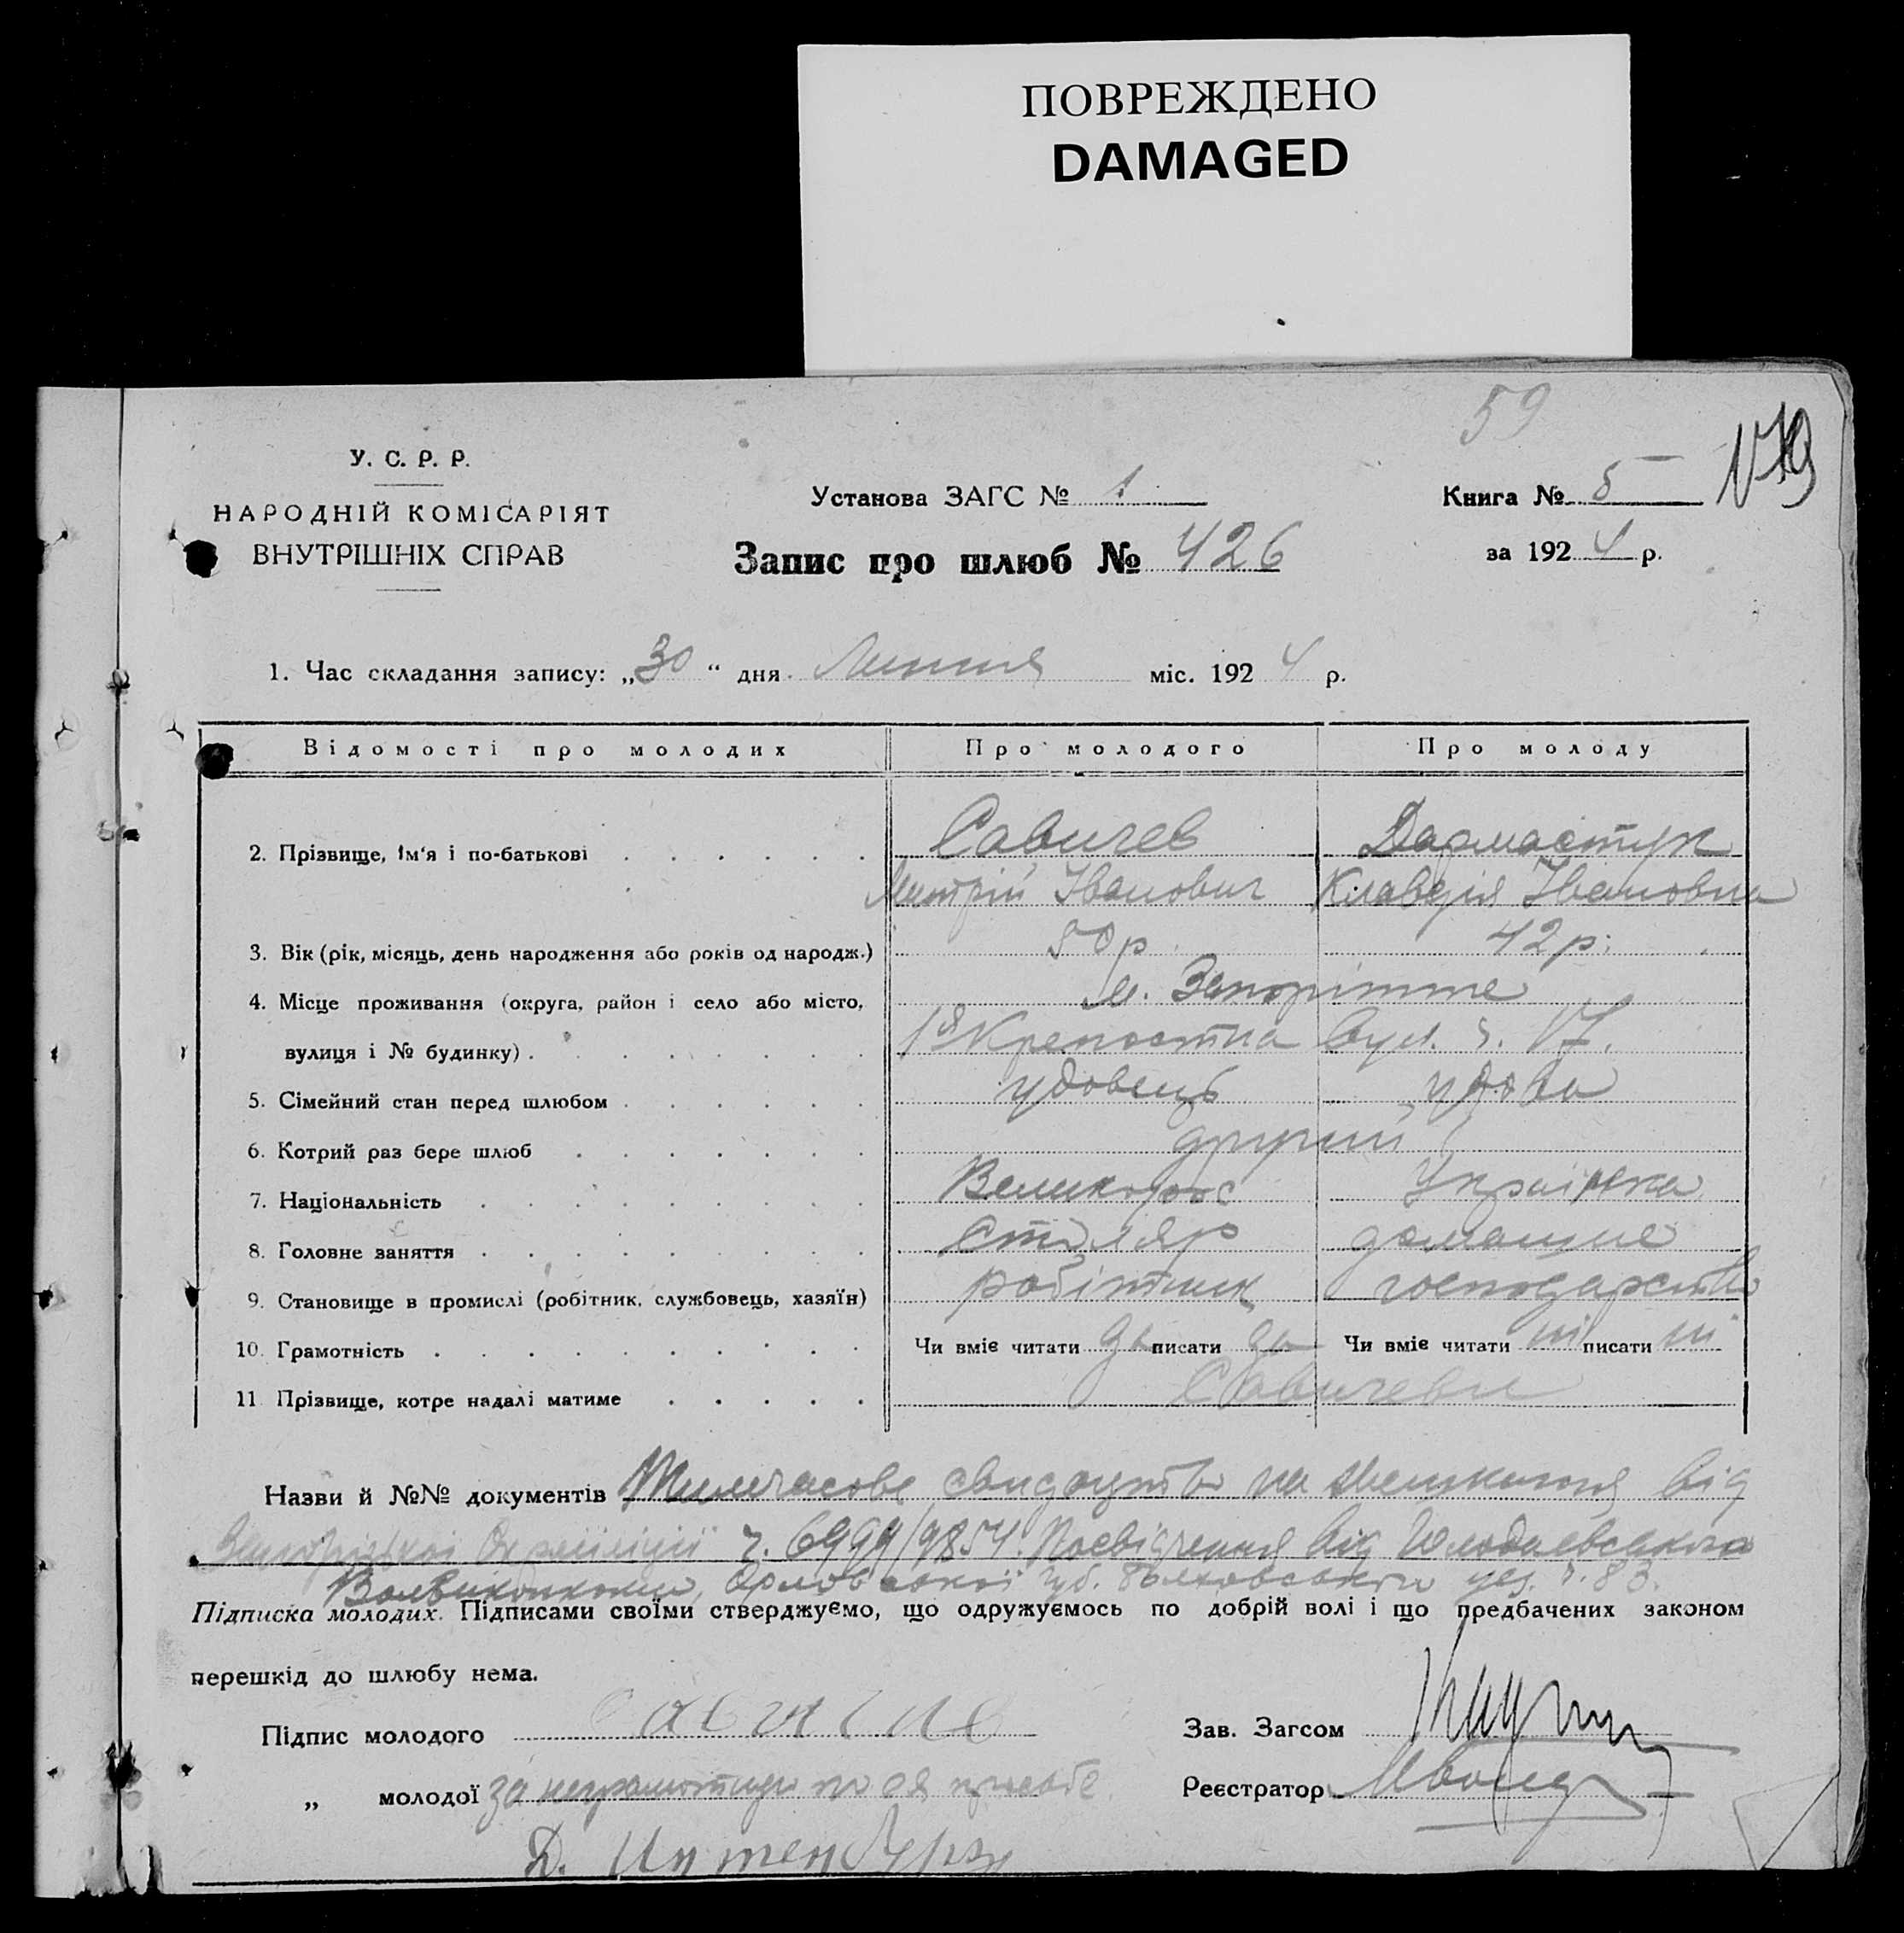 ПОВРЕЖДЕНО
DAMAGED
59
У. С. Р. Р.
НАРОДНІЙ КОМІСАРІЯТ
ВНУТРІШНІХ СПРАВ
Установа ЗАГС № 1
Книга № 5
Запис про шлюб № 426
за 1924 р.
1. Час складання запису: „30“ дня Липня міс. 1924 р.
Відомості про молодих Про молодого Про молоду
2. Прізвище, ім'я і по-батькові Савичев Дармостук
Митрій Іванович Клавдія Івановна
3. Вік (рік, місяць, день народження або років од народж.) 50 р 42 р.
4. Місце проживання (округа, район і село або місто, м. Запоріжже
вулиця і № будинку) 1я Крепостна вул. ч. 17.
5. Сімейний стан перед шлюбом удовець удова
6. Котрий раз бере шлюб другий
7. Національність Великорос Українка
8. Головне заняття Столяр домашне
9. Становище в промислі (робітник, службовець, хазяїн) робітник господарство
10. Грамотність Чи вміє читати да писати да Чи вміє читати ні писати ні
11 Прізвище, котре надалі матиме Савичеви
Назви й №№ документів Тимчасове свидоцтво на мешкання від
Запорізької Окрміліції ч. 6999/9854. Посвідчення від
Волвиконкома, Орловської губ. Болховського уез. ч. 83.
Підписка молодих. Підписами своїми стверджуємо, що одружуємось по добрій волі і що предбачених законом
перешкід до шлюбу нема.
Підпис молодого Савичев
Зав. Загсом
„ молодої за неграмотную по ея просьбе
Реєстратор
Д.